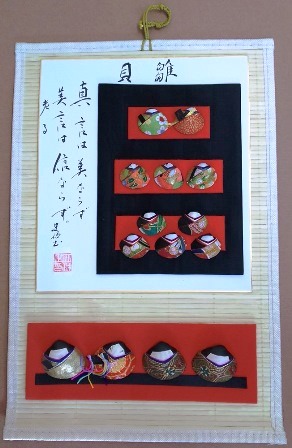 雛貝
真言は美ならず
美言は信ならず。
老子